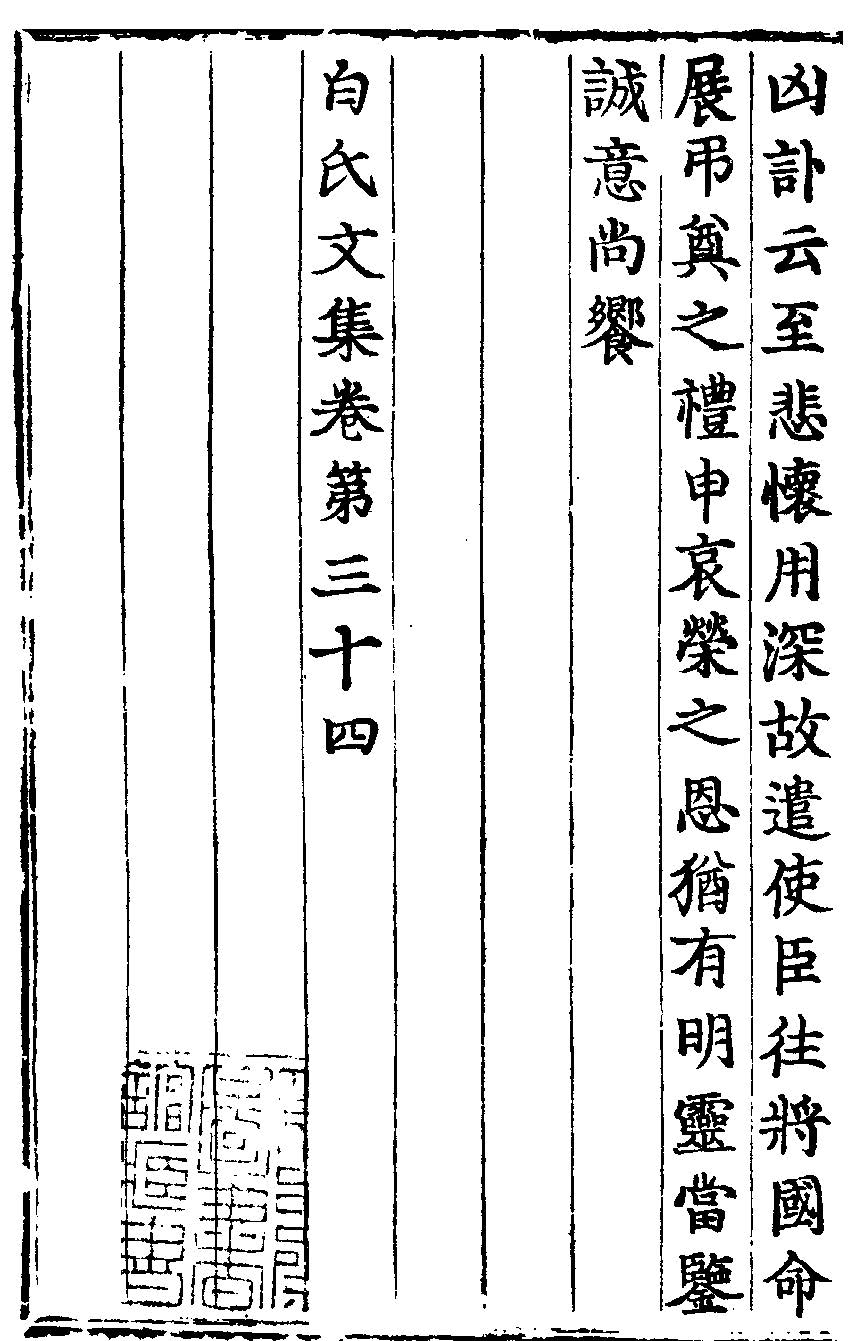 凶訃云至悲懷用深故遣使臣往將國命
展弔奠之禮申哀榮之恩猶有明靈當鑒
誠意尚饗
白氏文集卷第三十四